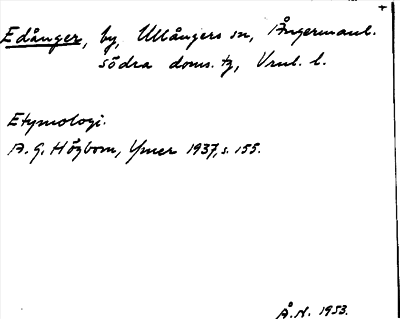 Edånger, by, Ullångers sn, Ångermanl.
södra doms. tg, Vrnl. l.
Etymologi.
A. G. Högbom, Ymer 1937, s. 155.
Å. N. 1953.